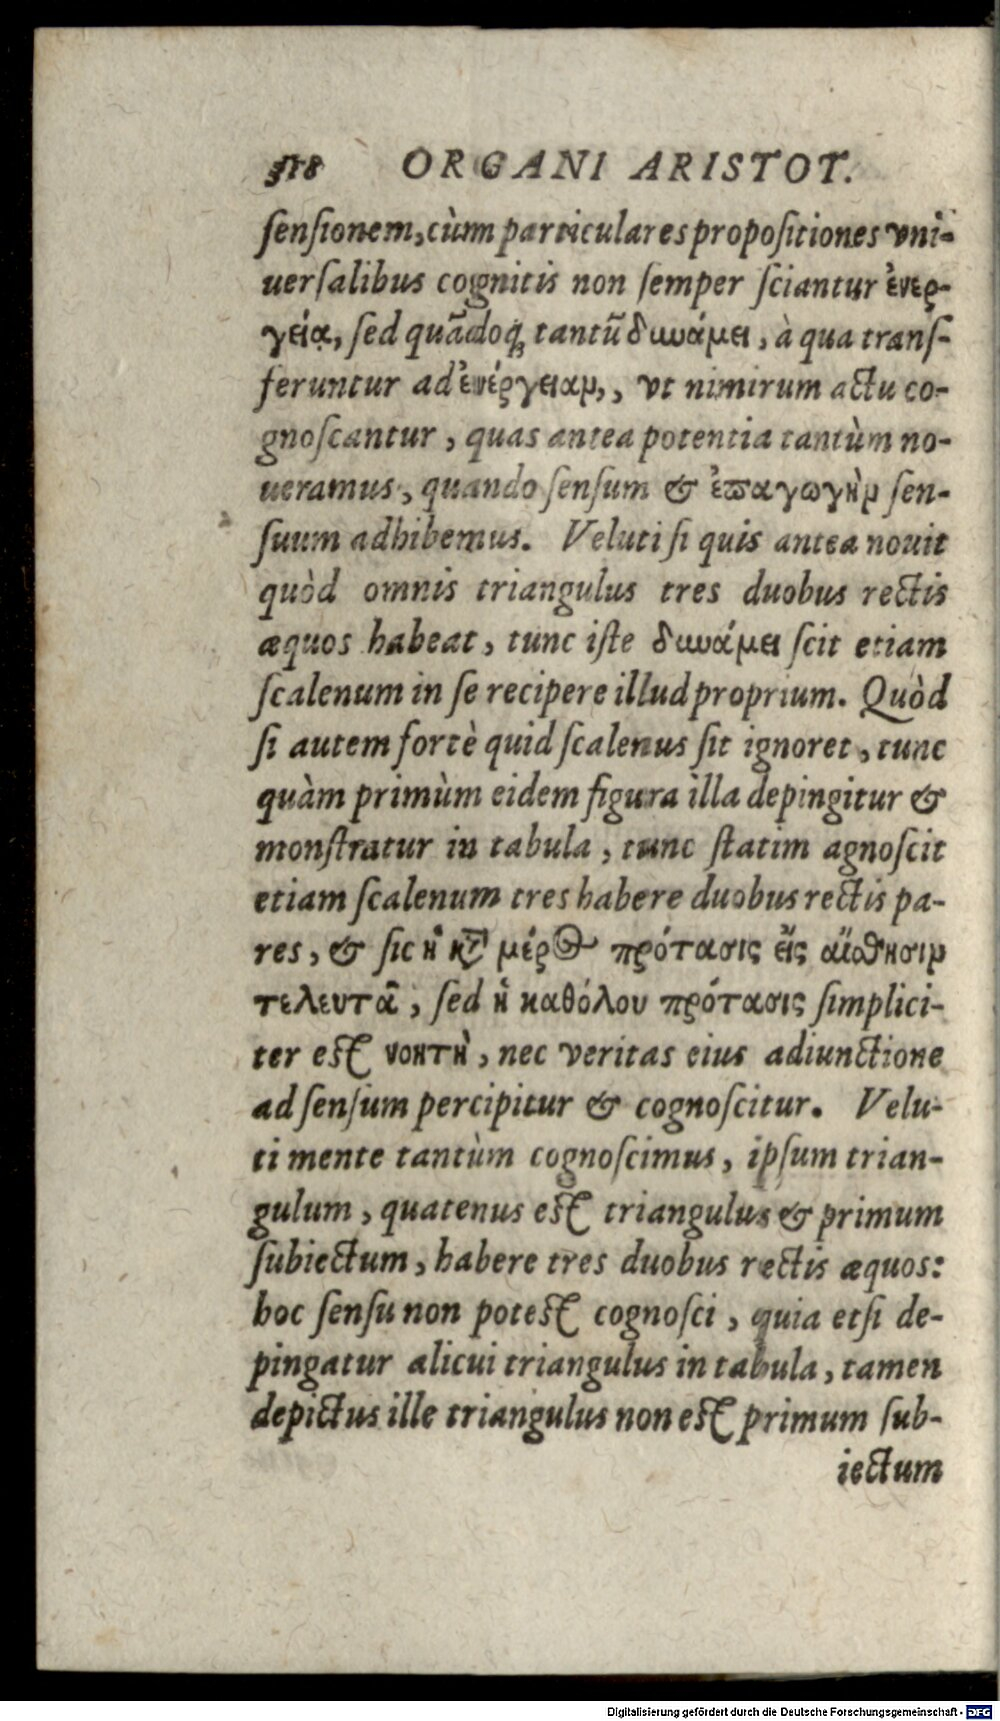 518 ORGANI ARISTOT.
ſenſionem, cùm particulares propoſitiones vni-
uerſalibus cognitis non ſemper ſciantur ἐνερ-
γείᾳ, ſed quãdoqꝫ tantũ δυνάμει, à qua tranſ-
feruntur ad ἐνέργειαν,, vt nimirum actu co-
gnoſcantur, quas antea potentia tantùm no-
ueramus, quando ſenſum & ἐπαγωγὴν ſen-
ſuum adhibemus. Veluti ſi quis antea nouit
quòd omnis triangulus tres duobus rectis
æquos habeat, tunc iſte δυνάμει ſcit etiam
ſcalenum in ſe recipere illud proprium. Quòd
ſi autem fortè quid ſcalenus ſit ignoret, tunc
quàm primùm eidem figura illa depingitur &
monſtratur in tabula, tunc ſtatim agnoſcit
etiam ſcalenum tres habere duobus rectis pa-
res, & ſic ἡ κτ̃ μέρος πρότασις εἰς αἴσθησιν
τελευτᾷ, ſed ἡ καθόλου πρότασις ſimplici-
ter eſt νοητὴ, nec veritas eius adiunctione
ad ſenſum percipitur & cognoſcitur. Velu-
ti mente tantùm cognoſcimus, ipſum trian-
gulum, quatenus eſt triangulus & primum
ſubiectum, habere tres duobus rectis æquos:
hoc ſenſu non poteſt cognoſci, quia etſi de-
pingatur alicui triangulus in tabula, tamen
depictus ille triangulus non eſt primum ſub-
iectum
Digitalisierung gefördert durch die Deutsche Forschungsgemeinschaft - DFG